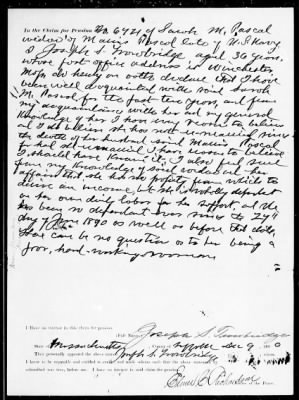 In the Claim for Pension No 6921 of Sarah M. Pascal
widow of Manuis Pascal late of U.S Navy
I Joseph S. Trowbridge aged 36 years,
whose post office address is Winchester
Mass do hereby on oath declare that I have
been well acquainted with said Sarah
M. Pascal for the past ten years, and from
my acquaintance with her and my general
Knowledge of her I have every reason to believe
and I do believe she has not remarried since
the death of her husband said Pascal
had she remarried I have reason to believe
I should have Known it; I also feel sure
from my knowledge of said widow and her
affairs that she has no property from which to
derive an income, but she is wholly dependent
on her own daily labor for her support, and she
has been so dependent ever since the 27"
day of June 1890 as well as before that date,
that can be no question as to her being a
poor, hard-working woman
I have no interest in this claim for pension.
Joseph S. Trowbridge
Massachusetts County of Suffolk Dec 9 0
Then personally appeared the above named Joseph S. Trowbridge